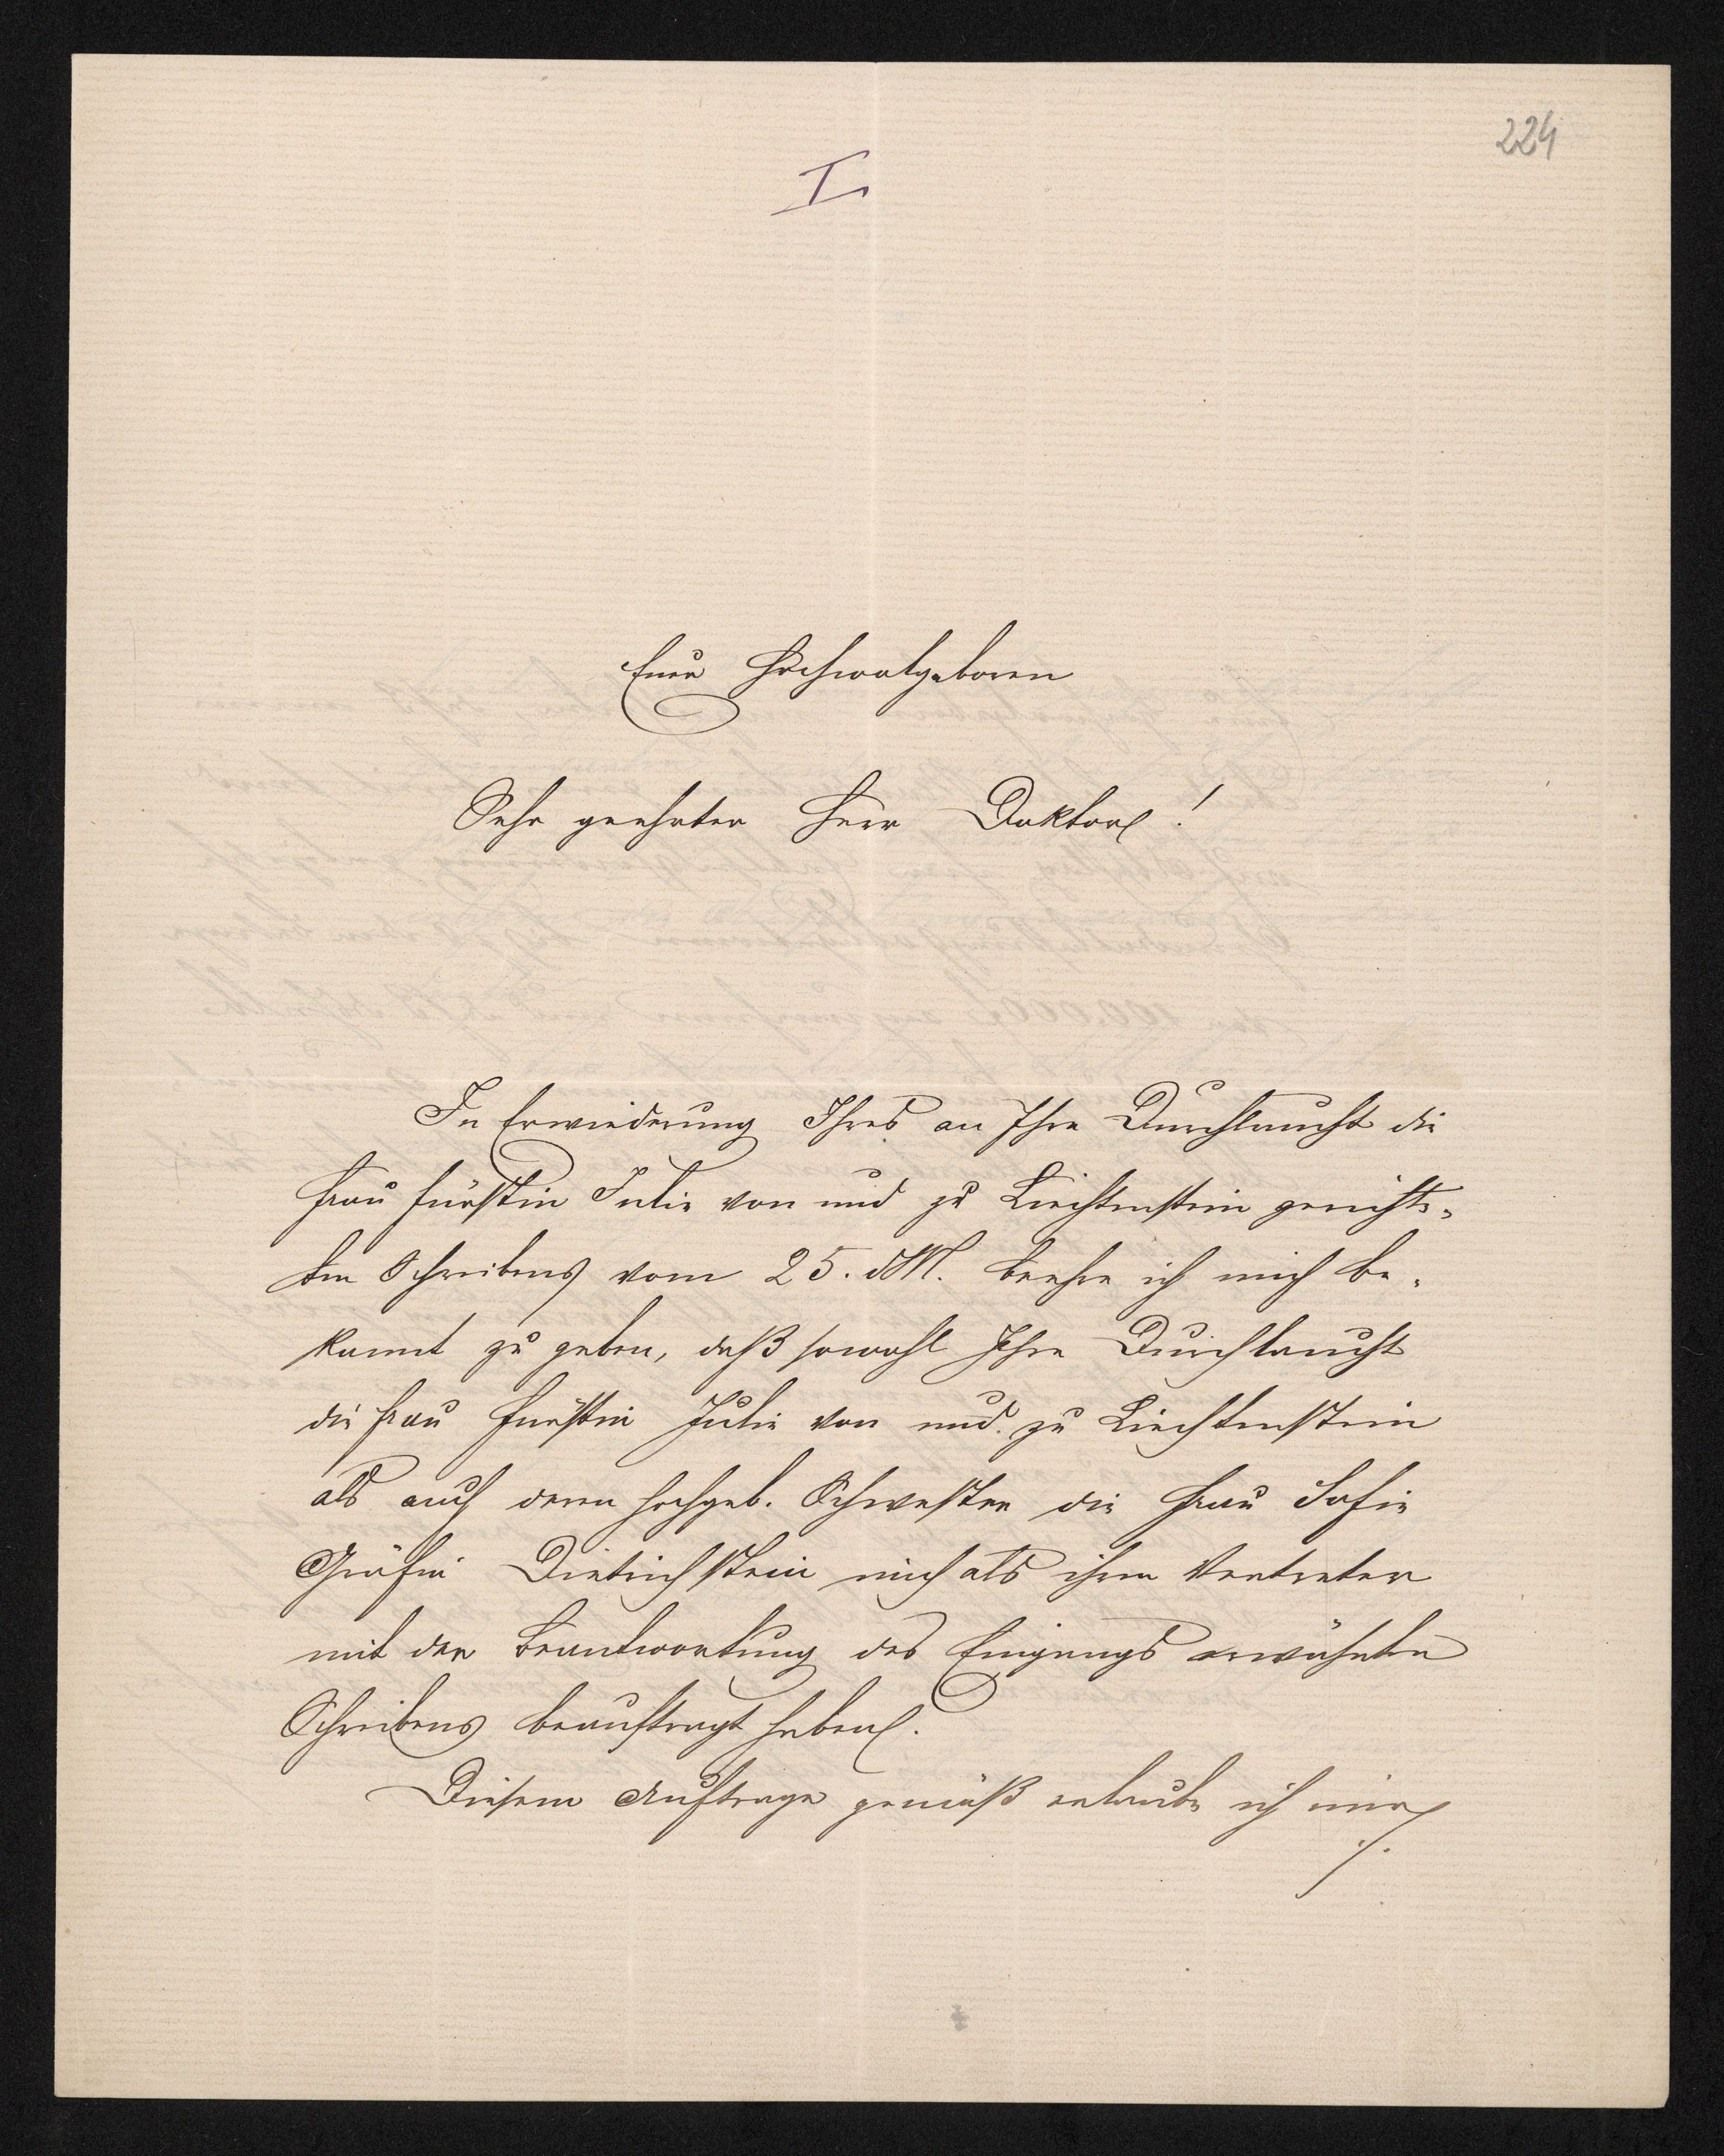 224
I
Euer Hochwolgeboren
Sehr geehrter Herr Doktor!
In Erwiederung Ihres an Ihre Durchlaucht die
Frau Fürstin Julie von und zu Liechtenstein gerichte-
ten Schreibens vom 25. d M. beehre ich mich be-
kannt zu geben, daß sowohl Ihre Durchlaucht
die Frau Fürstin Julie von und zu Liechtenstein
als auch deren hochgeb. Schwester die Frau Sofie
Gräfin Dietrichstein mich als ihren Vertreter
mit der Beantwortung des Eingangs erwähnten
Schreibens beauftragt haben.
Diesem Auftrage gemäß erlaube ich mir
./.